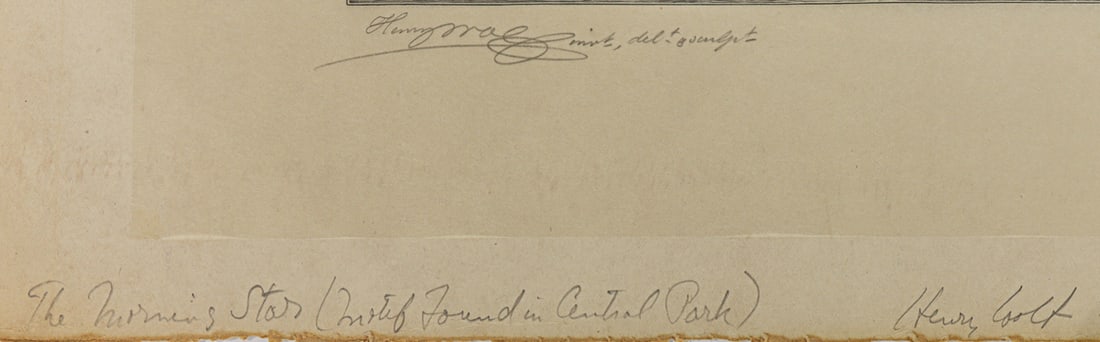 Henry Wolf invt, delt & sculpt
The Morning Star (Motif Found in Central Park) Henry Wolf